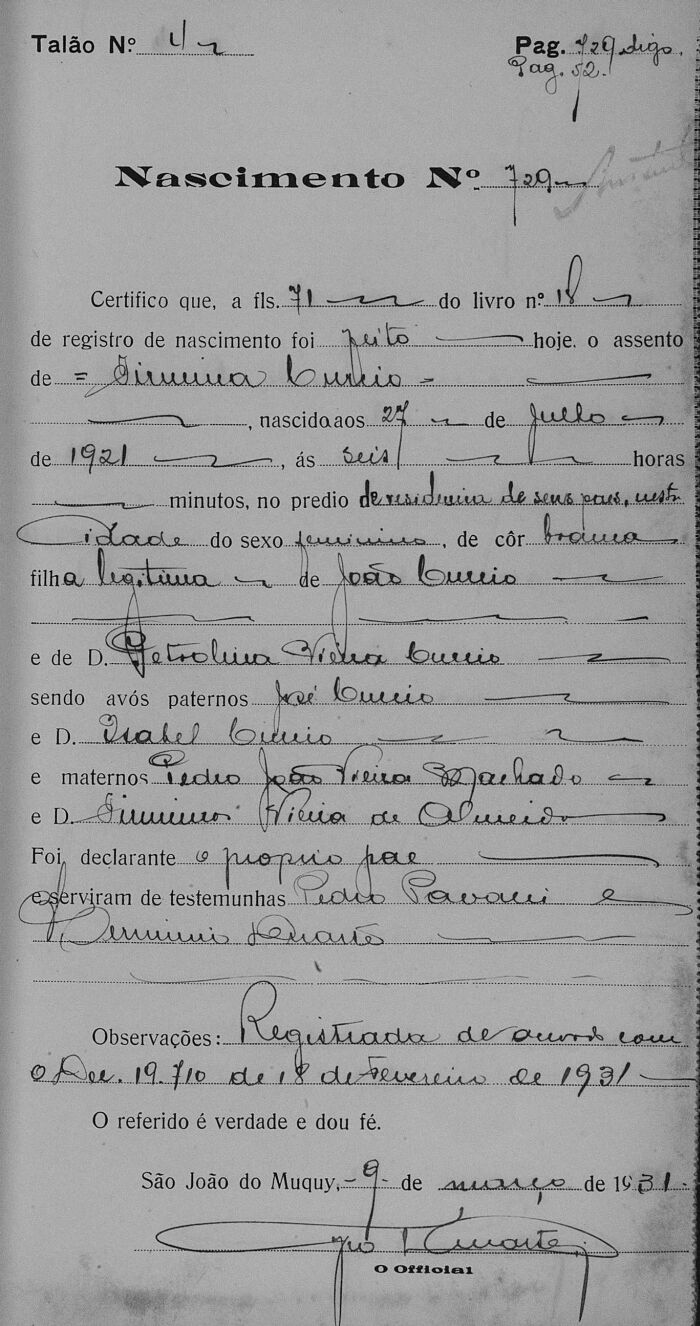 Talão N.º 4
Pag. 729 digo.
Pag. 52.
Nascimento Nº 729
Certifico que, a fls. 71 do livro n.º 18
de registro de nascimento foi feito hoje. o assento
de = Firmina Curcio =
, nascida aos 27 de Julho
de 1921, ás seis horas
minutos, no predio de residencia de seus paes, nesta
cidade do sexo feminino, de côr branca
filha legitima de João Curcio
e de D. Petrolina Vieira Curcio
sendo avós paternos José Curcio
e D. Isabel Curcio
e maternos Pedro João Vieira Machado
e D. Vieira de Almeida
Foi declarante o proprio pae
e serviram de testemunhas Pedro Pavani e
Herminio Duarte
Observações: Registrada de accordo com
o Dec. 19.710 de 18 de Fevereiro de 1931
O referido é verdade e dou fé.
São João do Muquy, -9- de março de 1931.
Duarte
O Official